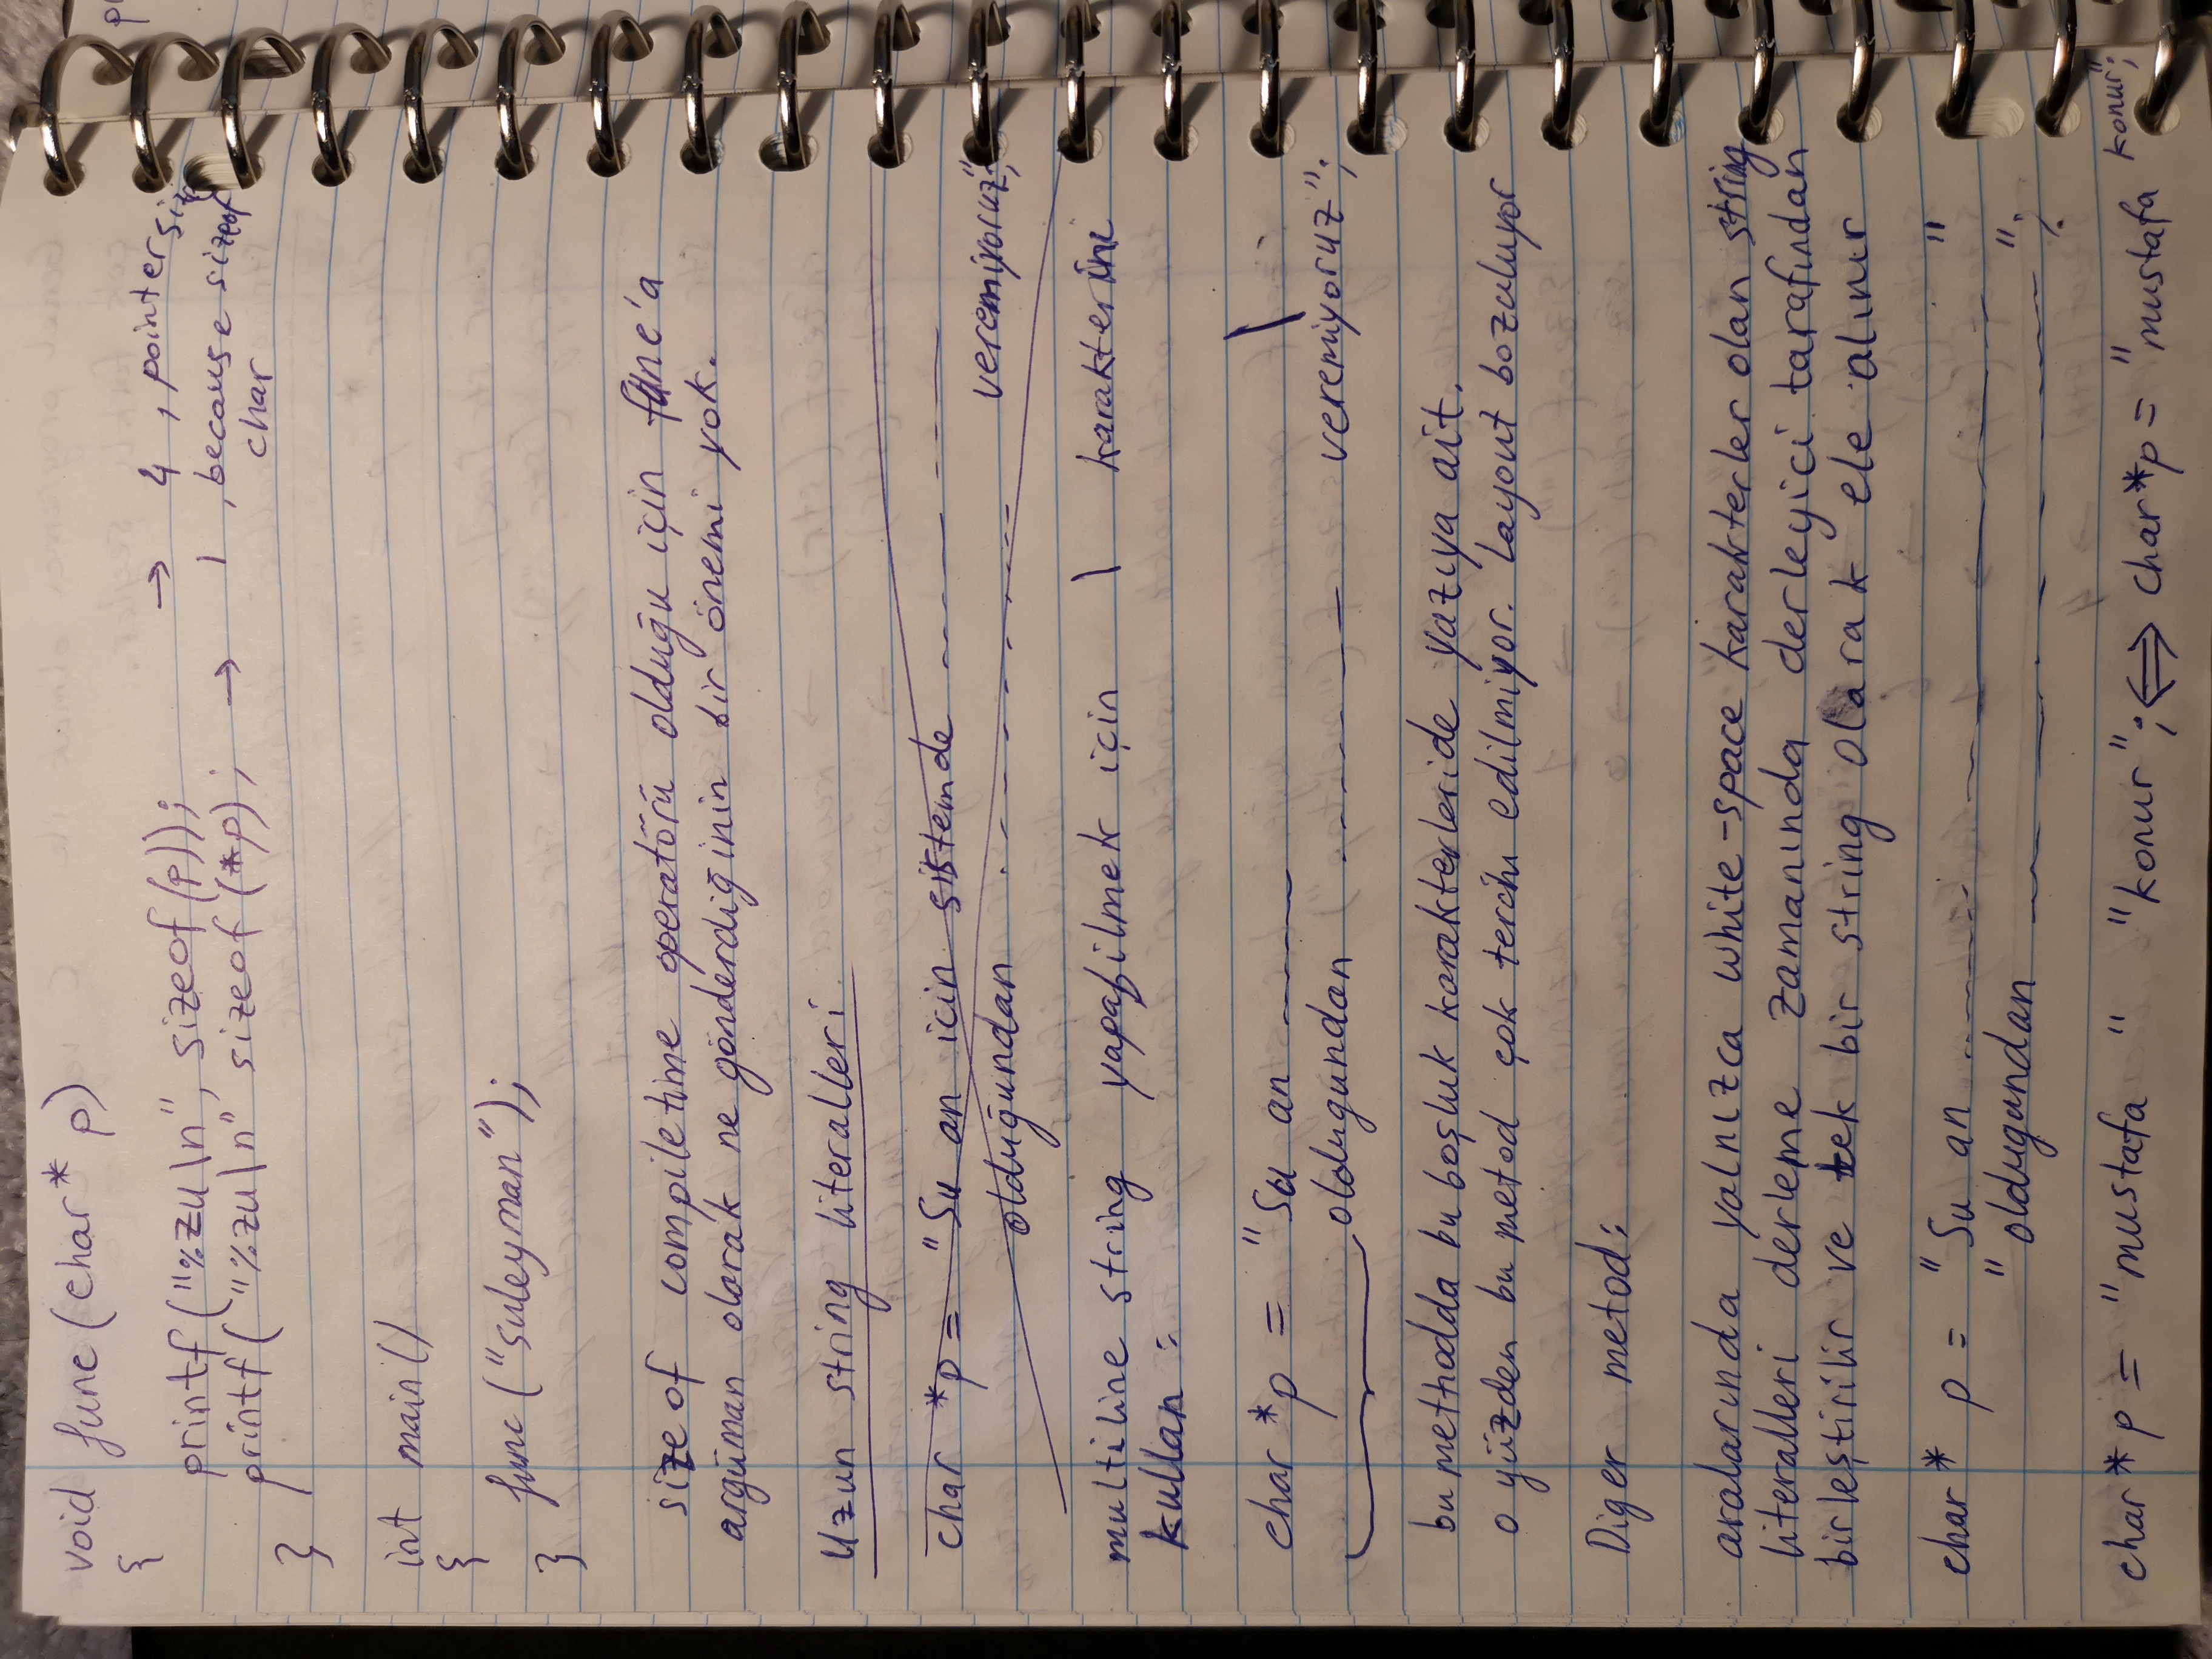 void func(char* p)
{
printf("%zu\n", sizeof(p)); → 4 , pointer size
printf( "%zu\n" sizeof (*p); → 1 , because sizeof
char
}
int main()
{
func("suleyman");
}
sizeof compiletime operatörü olduğu için func'a
argüman olarak ne gönderdiğinin bir önemi yok.
Uzun string literalleri
char *p = "Su an icin sistemde
olduğundan veremiyoruz";
multiline string yapabilmek için \ karakterini
kullan :
char *p = "Su an \
oldugundan veremiyoruz";
bu methodda bu boşluk karakterleride yazıya ait.
o yüzden bu metod çok tercih edilmiyor. Layout bozuluyor
Diger metod:
aralarında yalnızca white-space karakterler olan string
literalleri derleme zamanında derleyici tarafından
birleştirilir ve tek bir string olarak ele alınır
char* p = "Su an "
"oldugundan ";
char* p = "mustafa " "konur"; ⟺ char*p = "mustafa konur";